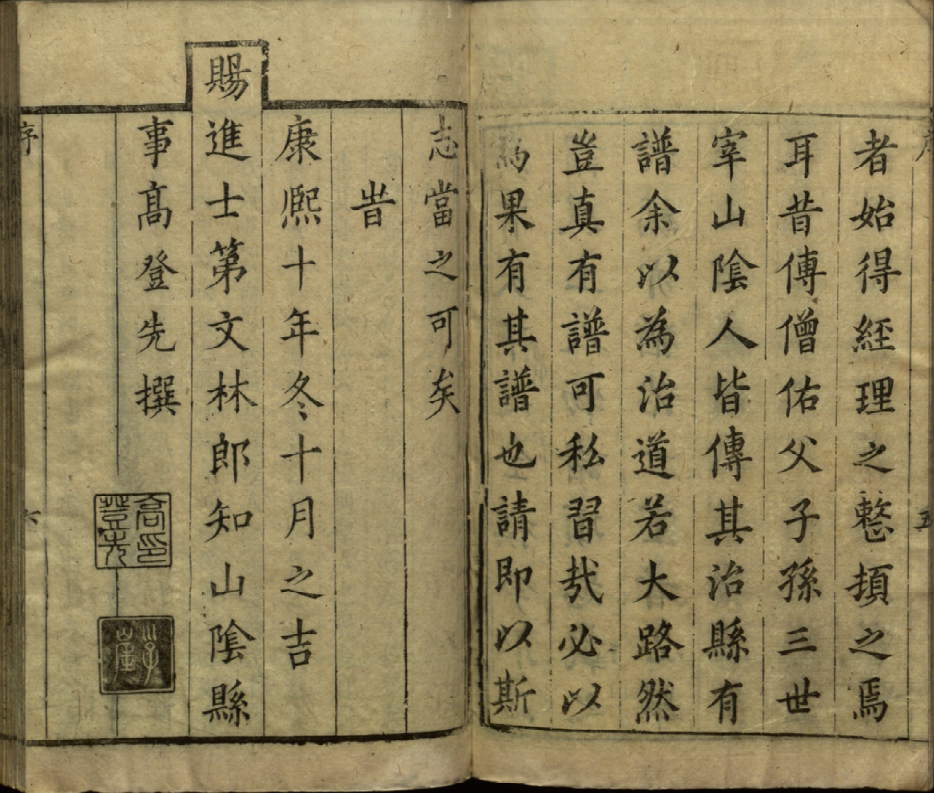 序
五
者始得經理之整頓之焉
耳昔傅僧佑父子孫三世
宰山陰人皆傳其治縣有
譜余以為治道若大路然
豈真有譜可私習哉必以
為果有其譜也請即以斯
志當之可矣
旹
康熈十年冬十月之吉
賜進士第文林郎知山陰縣
事髙登先撰
高印登先
序
六